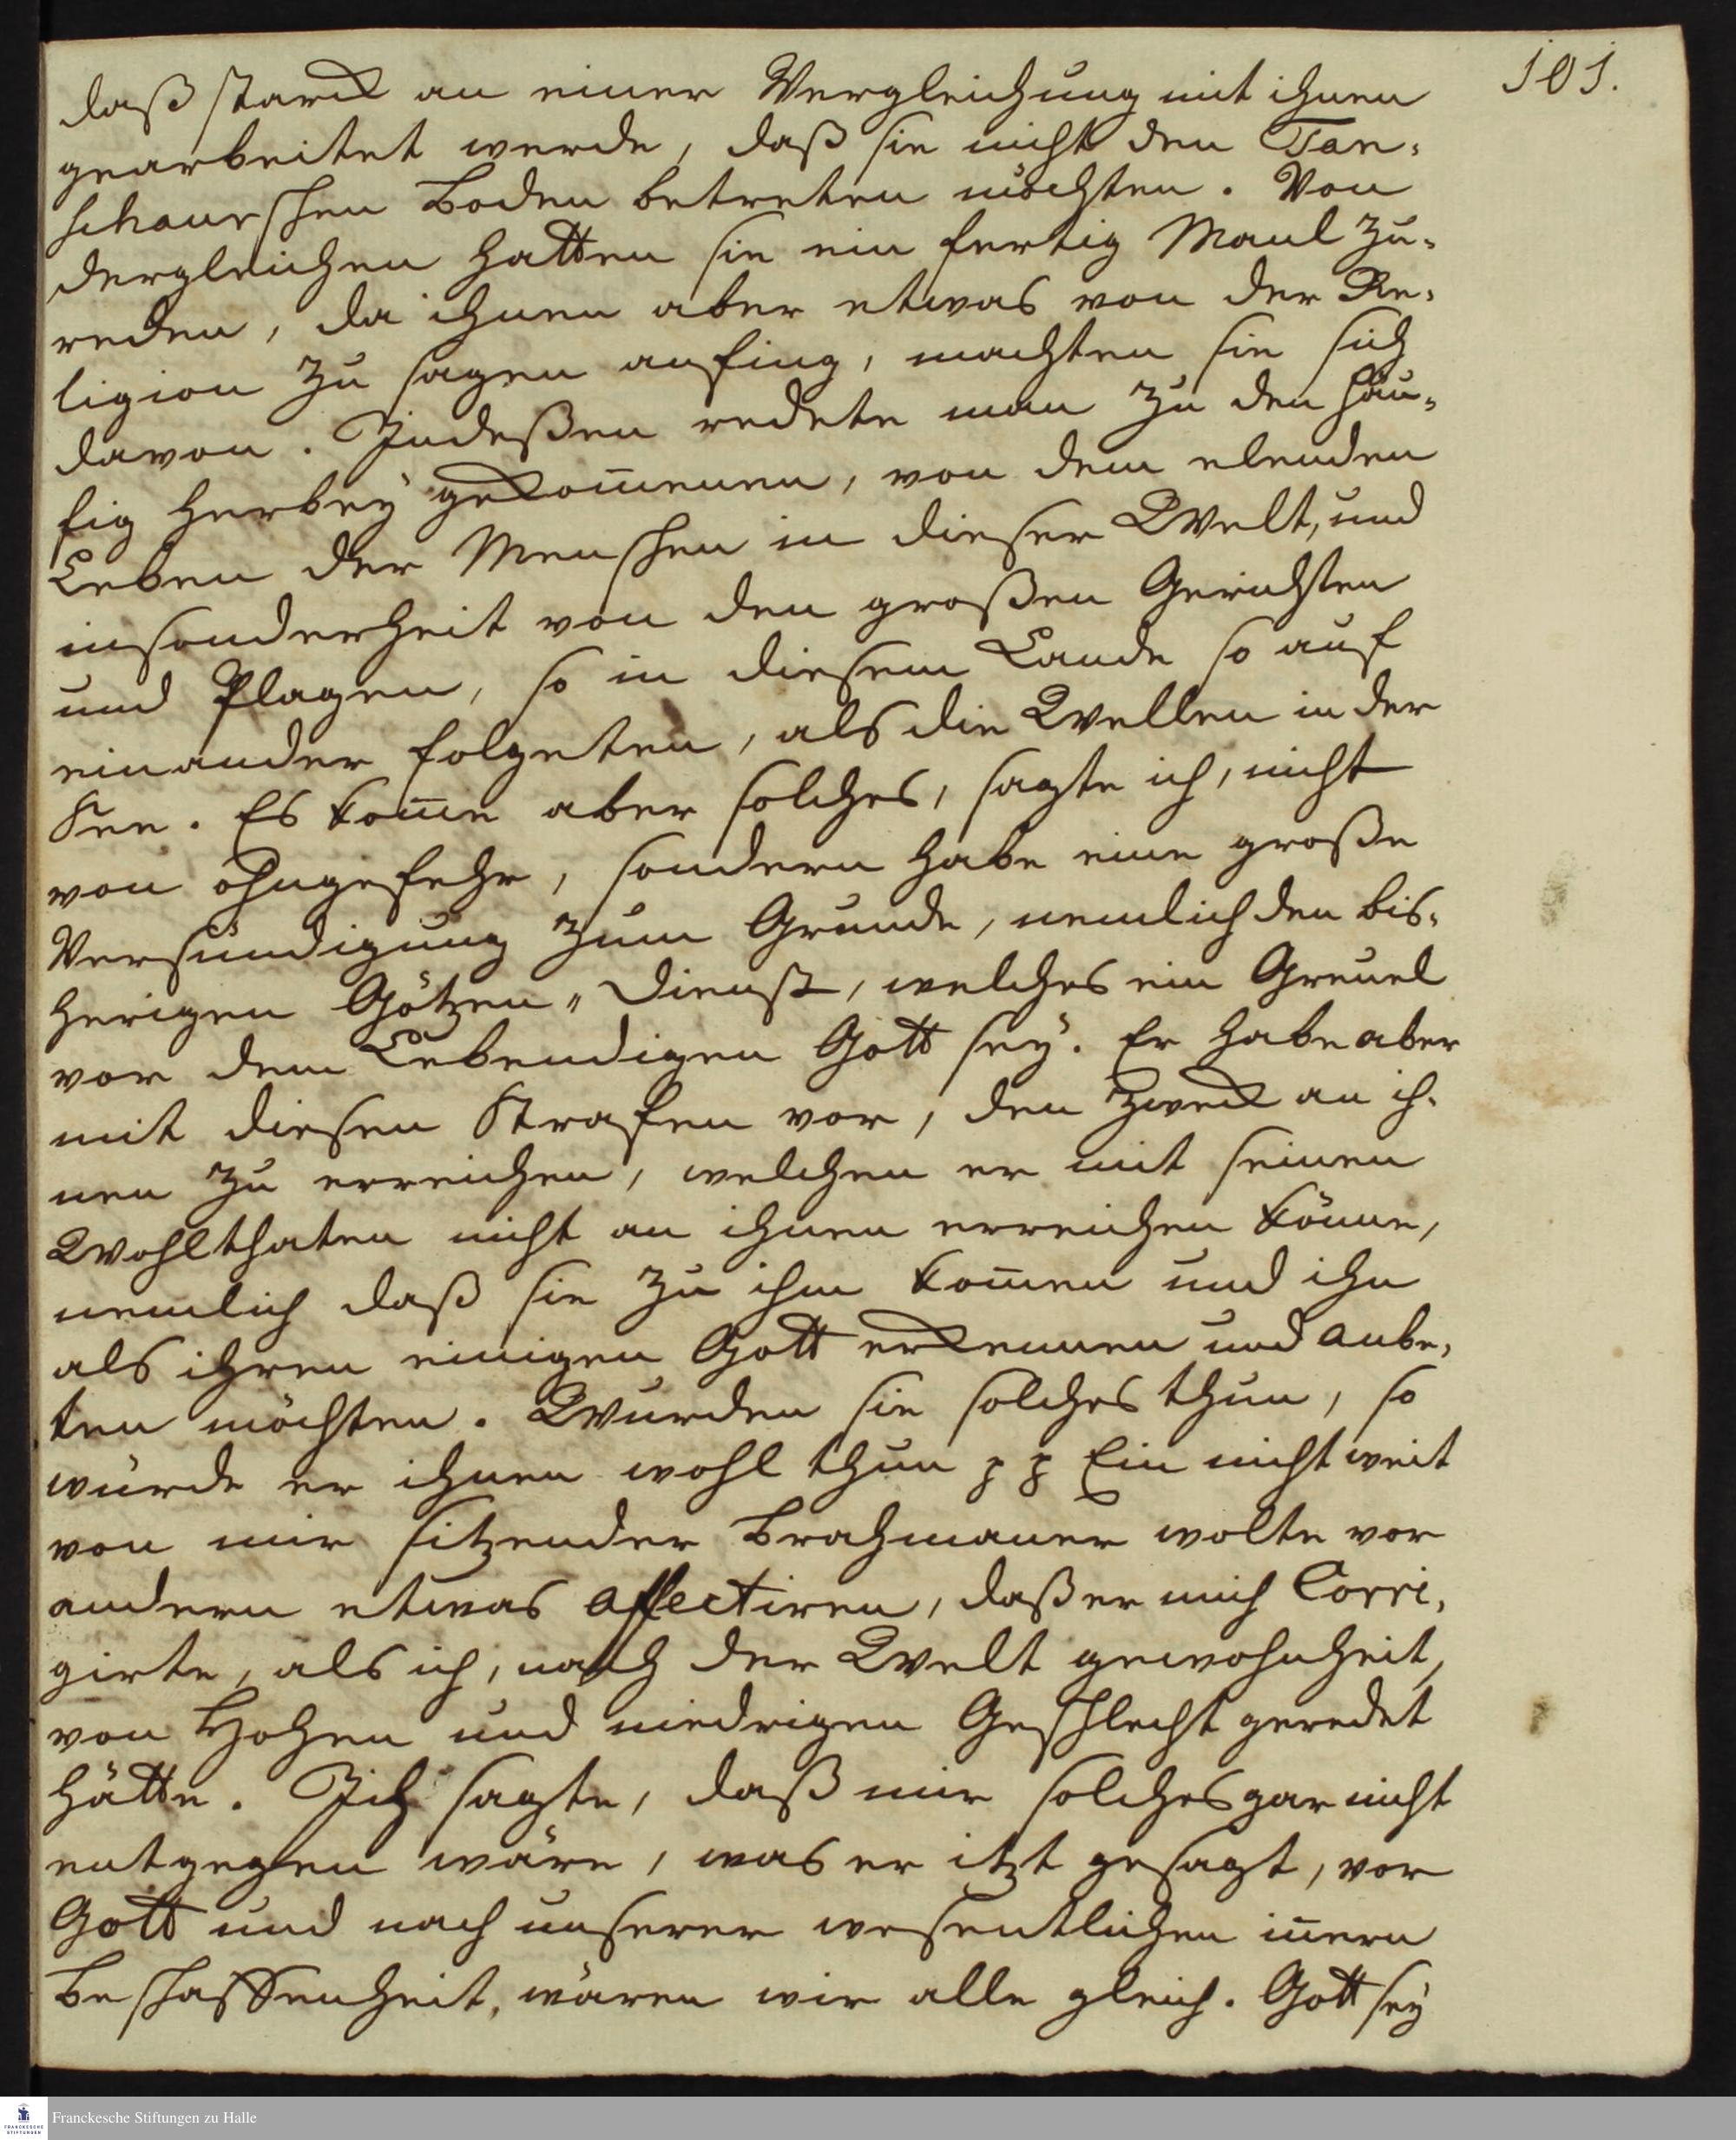 101.
daß starck an einer Vergleichung mit ihnen
gearbeitet werde, daß sie nicht den Tan-
schaurschen Boden betreten möchten. Von
dergleichen hatten sie ein fertig Maul zu-
reden, da ihnen aber etwas von der Re-
ligion zu sagen anfing, machten sie sich
davon. Indeßen redete man zu den häu-
fig herbey gekom̅enen, von dem elenden
Leben der Menschen in dieser Welt, und
insonderheit von den großen Gerichten
und Plagen, so in diesem Lande so auf
einander folgeten, als die Wellen in der
See. Es kom̅e aber solches, sagte ich, nicht
von ohngefehr, sondern habe eine große
Versündigung zum Grunde, nemlich den bis-
herigen Götzen-Dienst, welches ein Greuel
vor dem Lebendigen Gott sey. Er habe aber
mit diesen Strafen vor, den Zweck an ih-
nen zu erreichen, welchen er mit seinen
Wohlthaten nicht an ihnen erreichen könne,
nemlich daß sie zu ihm kom̅en und ihn
als ihren einigen Gott erkennen und anbe-
ten möchten. Würden sie solches thun, so
würde er ihnen wohl thun p p Ein nicht weit
von mir sitzender Brahmaner wolte vor
andern etwas affectiren, daß er mich Corri-
girte, als ich, nach der Welt gewohnheit,
von Hohen und niedrigen Geschlecht geredet
hätte. Ich sagte, daß mir solches gar nicht
entgegen wäre, was er itzt gesagt, vor
Gott und nach unserer wesentlichen in̅ern
Beschaffenheit, wären wir alle gleich. Gott sey
Franckesche Stiftungen zu Halle
FRANCKESCHE
STIFTUNGEN